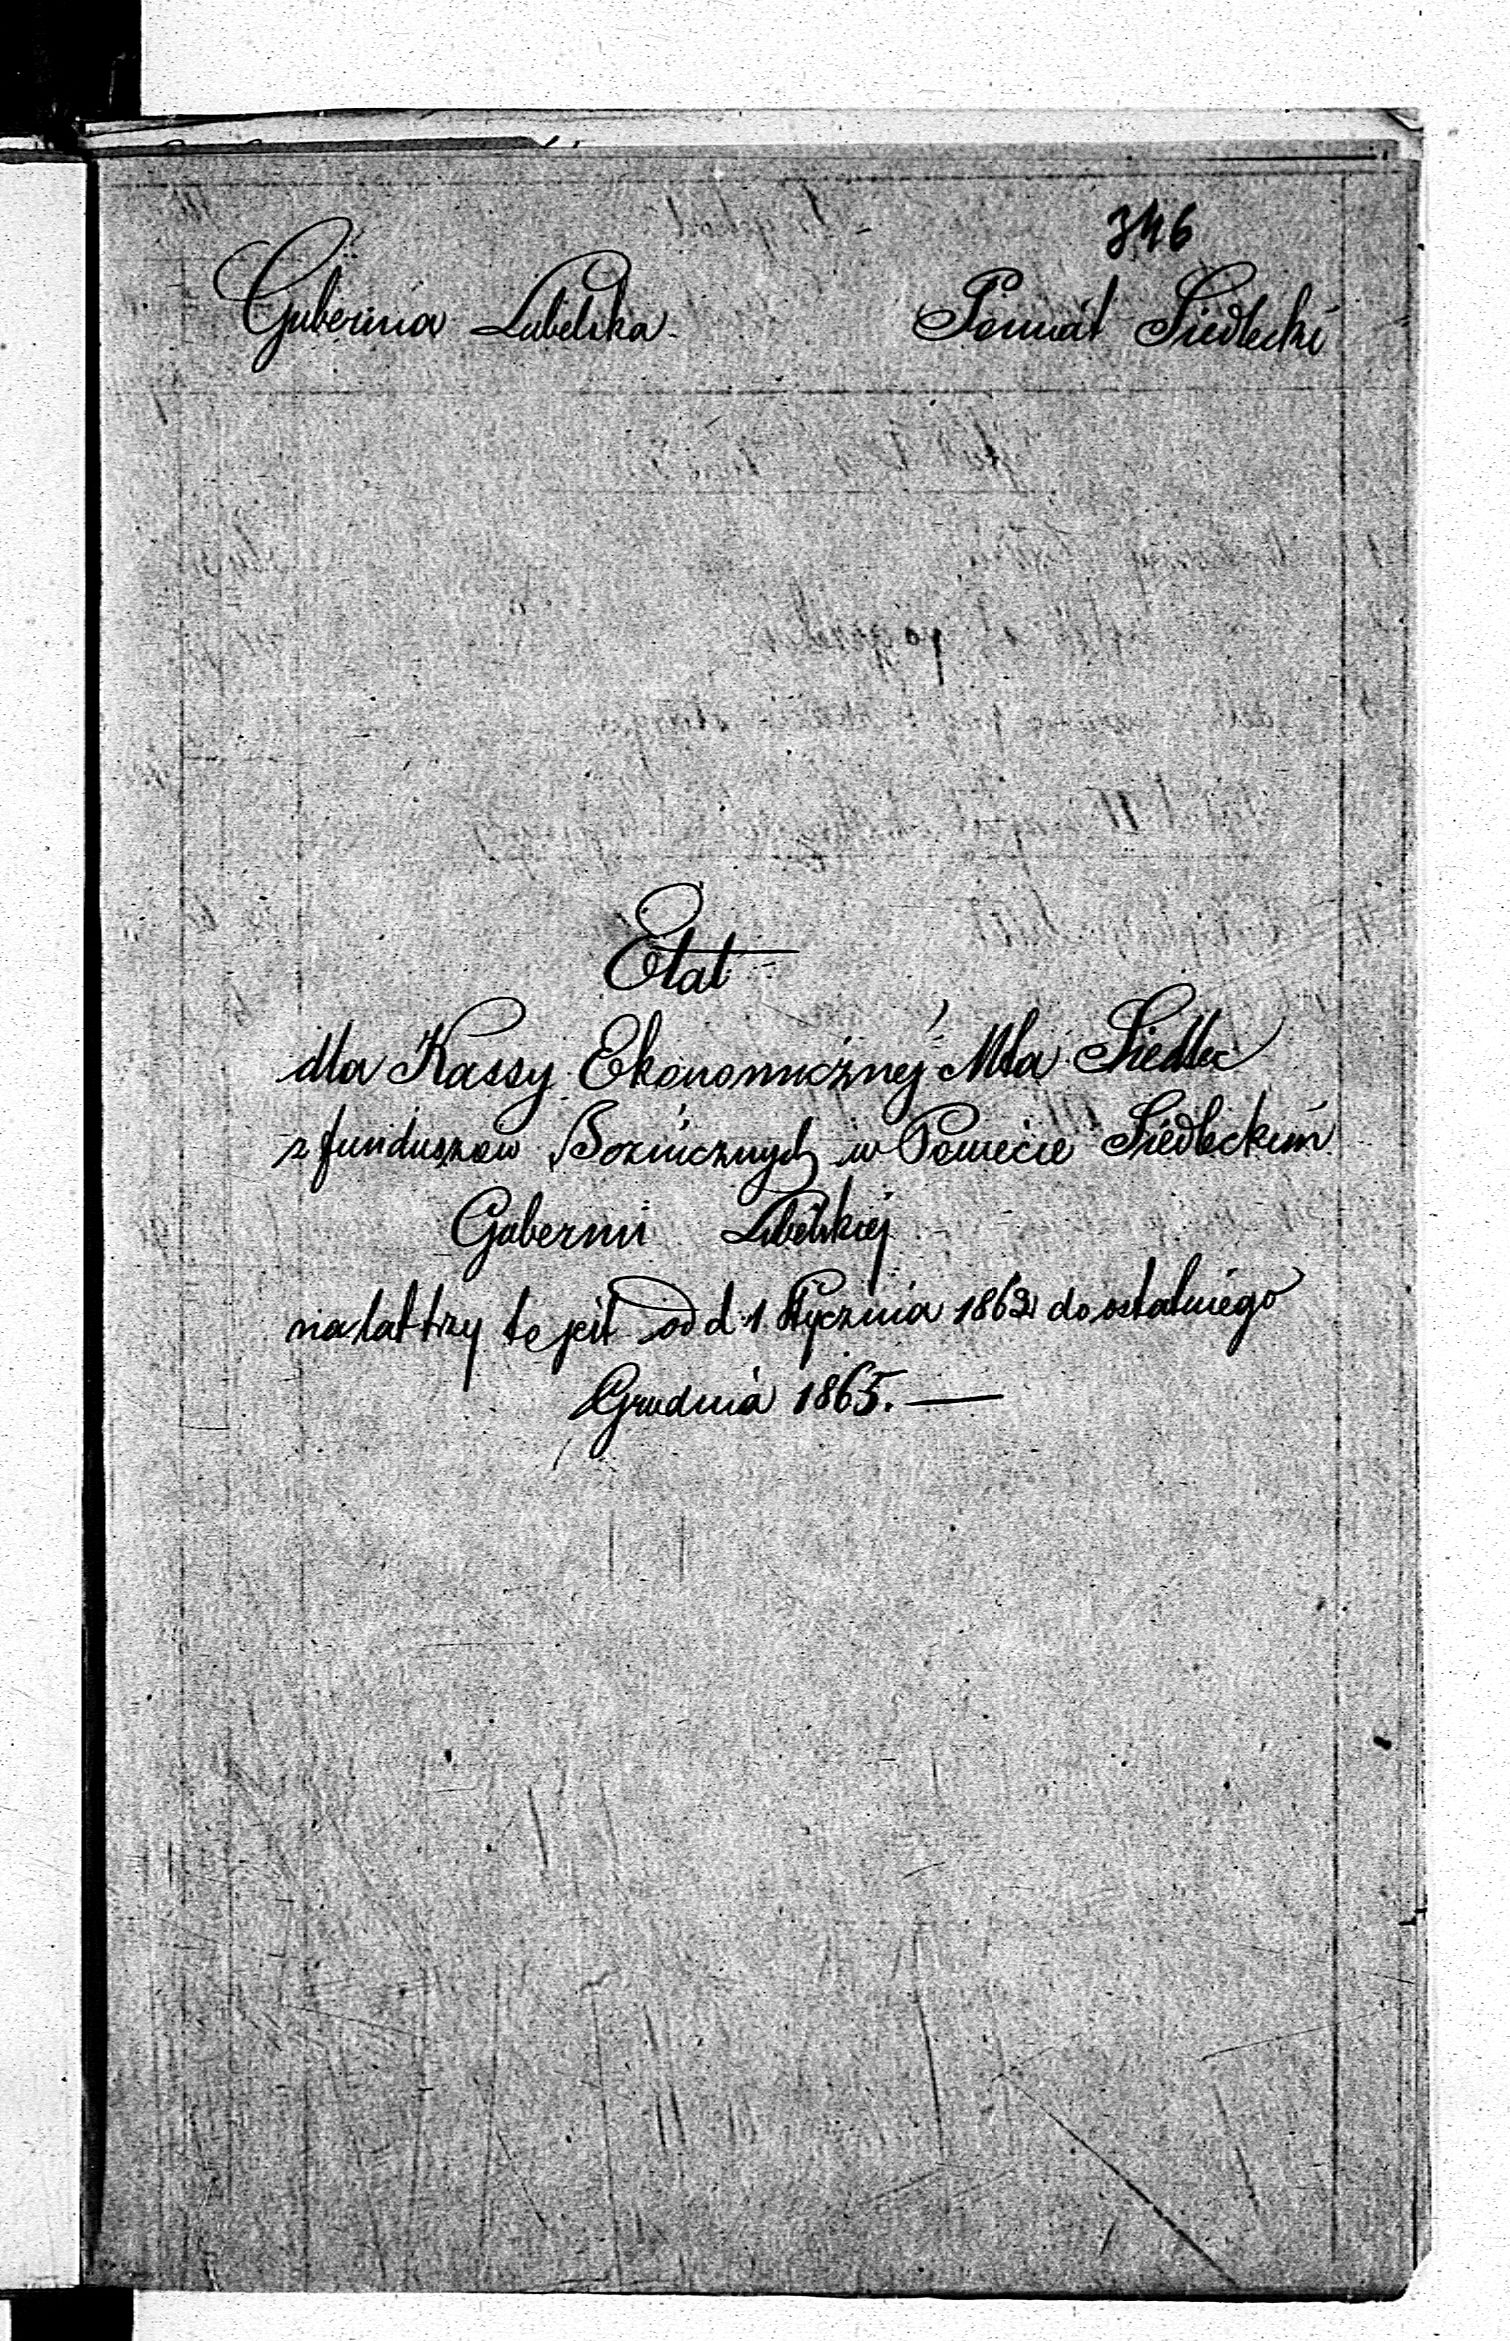 346
Gubernia Lubelska Powiat Siedlecki
Etat
dla Kassy Ekonomicznej Mta Siedlec
z funduszów Boznicznych w Powiecie Siedleckim
Gubernii Lubelskiej
na lat trzy to jest od d 1 Stycznia 1863 do ostatniego
Grudnia 1865. —